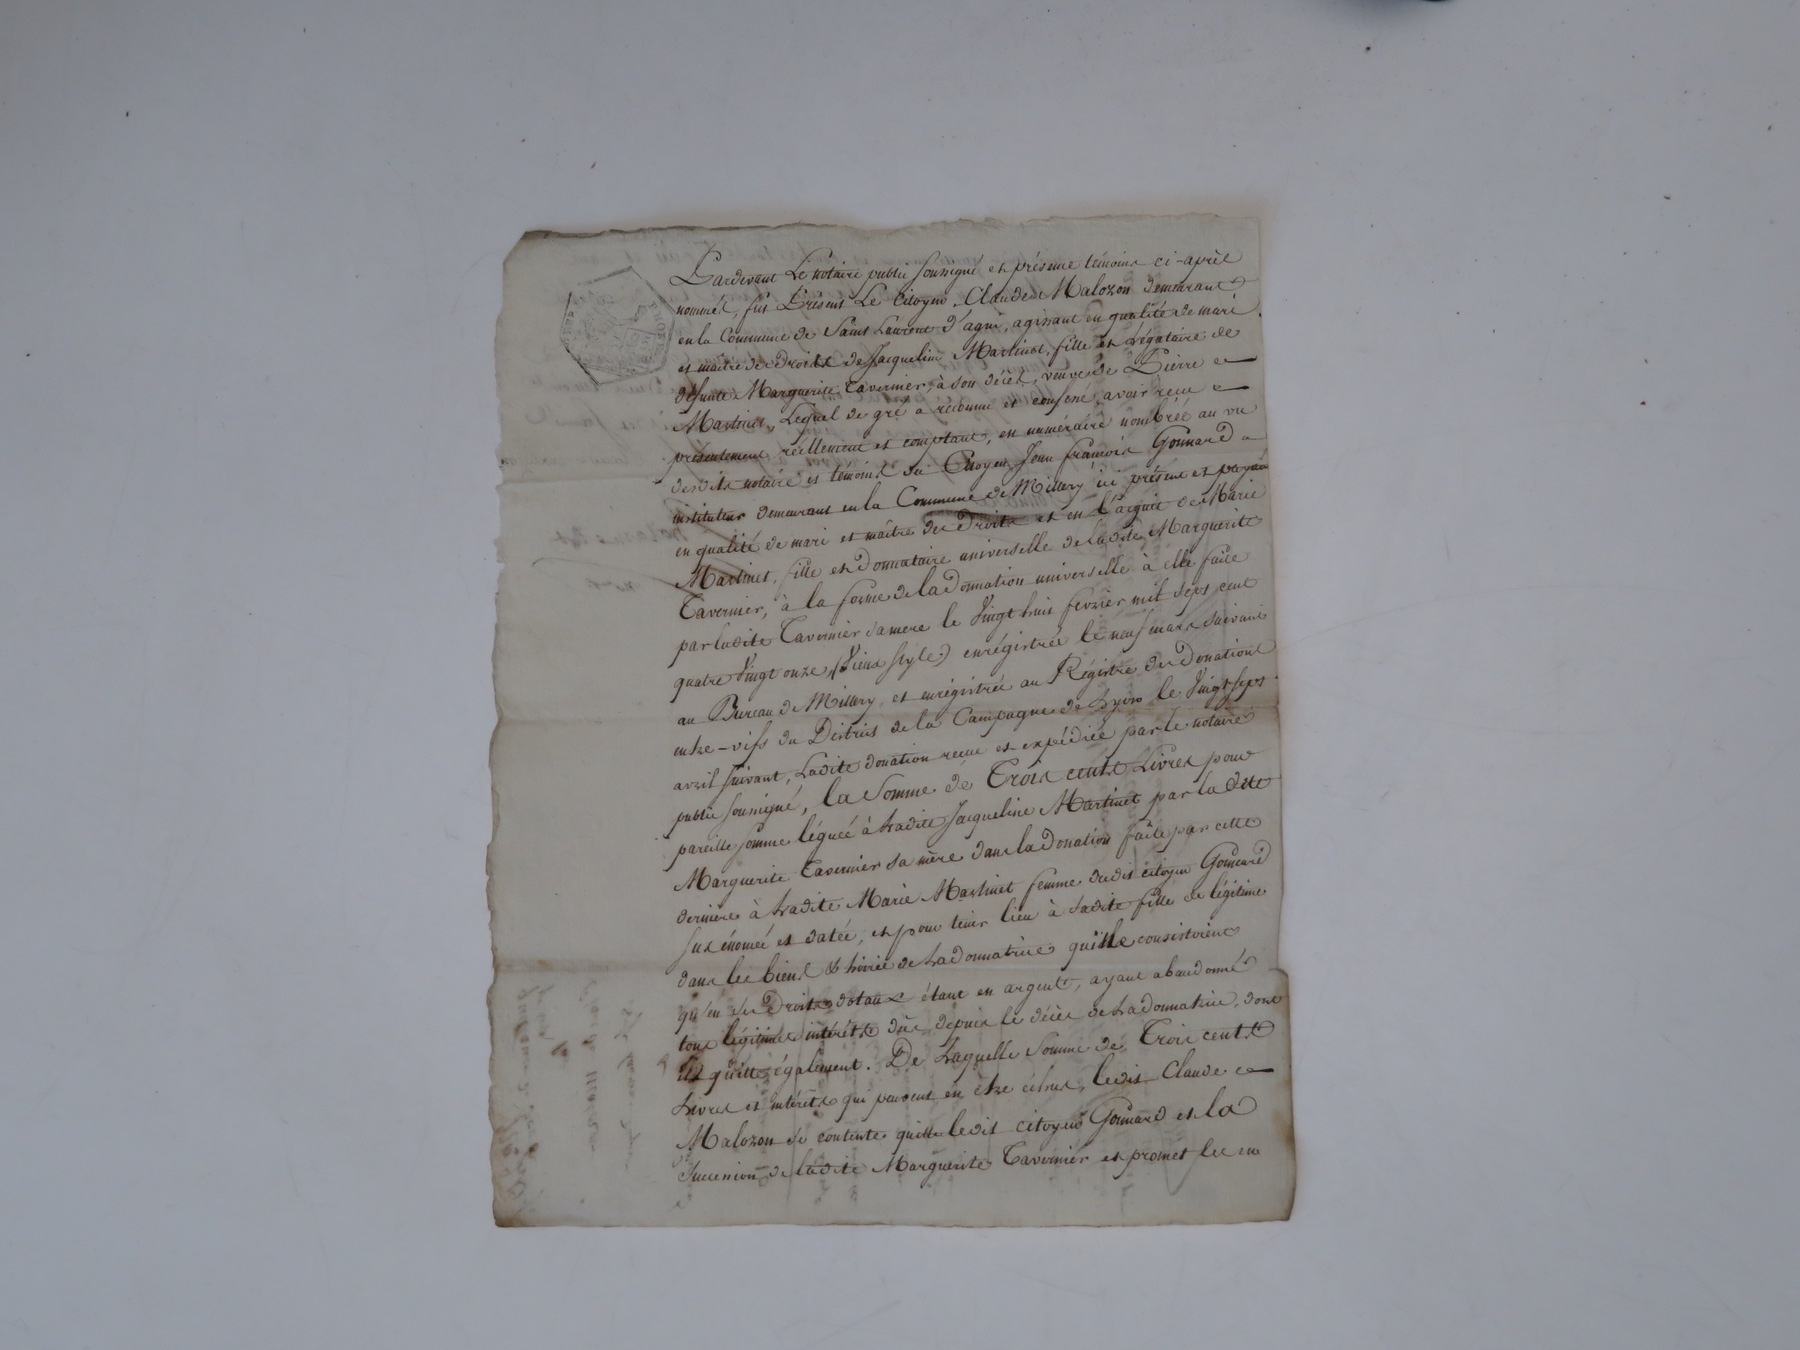 Pardevant Le notaire public soussigné en présence témoins ci-après
nommés, fut Présent Le Citoyen Claude Malozon demeurant
en la Commune de Saint Laurent d'agni, agissant en qualité de mari
et maître des Droits de Jacqueline Martinet, fille et Légataire de
défunte Marguerite Tavernier, à son décès, veuve de Pierre
Martinet, Lequel de gré a reconnu et confessé avoir reçu
présentement réellement et comptant, en numéraire nombrée au vu
desdits notaire et témoins du Citoyen Jean françois Gonnard
instituteur demeurant en la Commune de Millery ici présent et payant
en qualité de mari et maître des Droits et en L'acquit de Marie
Martinet, fille et Donnataire universelle de Ladite Marguerite
Tavernier, à la forme de la Donnation universelle à elle faite
par ladite Tavernier sa mere le Vingt huit fevrier mil sept cent
quatre Vingt onze (Vieux Style) enrégistrée le neuf mars suivant
au Bureau de Millery, et enrégistrée au Régistre des Donations
entre-vifs du District de la Campagne de Lyon le Vingt sept
avril suivant, Ladite donation reçue et expédiée par le notaire
public soussigné, la Somme de Trois cents Livres pour
pareille somme léguée à Ladite Jacqueline Martinet par la dite
Marguerite Tavernier sa mère dans la Donation faite par cette
derniere à Ladite Marie Martinet femme dudit citoyen Gonnard
sus énoncée et datée, et pour tenir lieu à sadite fille de légitime
dans les biens & hoirie de La donnatrice qu'ille consistoient
qu'en ses Droits dotaux étant en argent, ayant abandonné
tous légitimes intérêts dûs depuis le décès de La donnatrice, dont
il quitte également. De Laquelle Somme de Trois cents
Livres et intérêts qui peuvent en être échus, ledit Claude
Malozon se contente quitte ledit citoyen Gonnard et la
Succession de ladite Marguerite Tavernier et promet les en